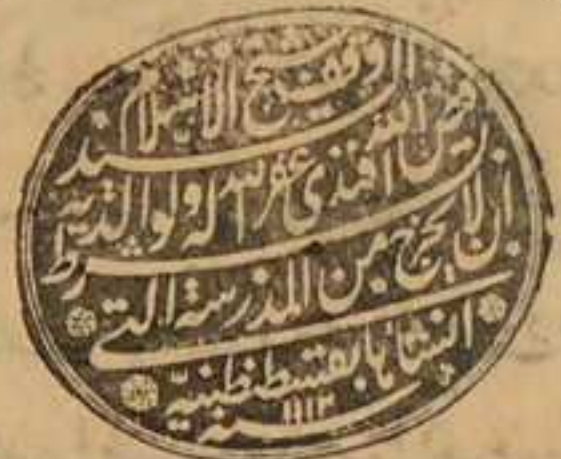 وقف شيخ الاسلام
السيد
فيض الله افندى غفر الله له ولوالديه
بشرط
ان لا يخرج من المدرسة التى
انشاها بقسطنطنية
سنة ١١١٣